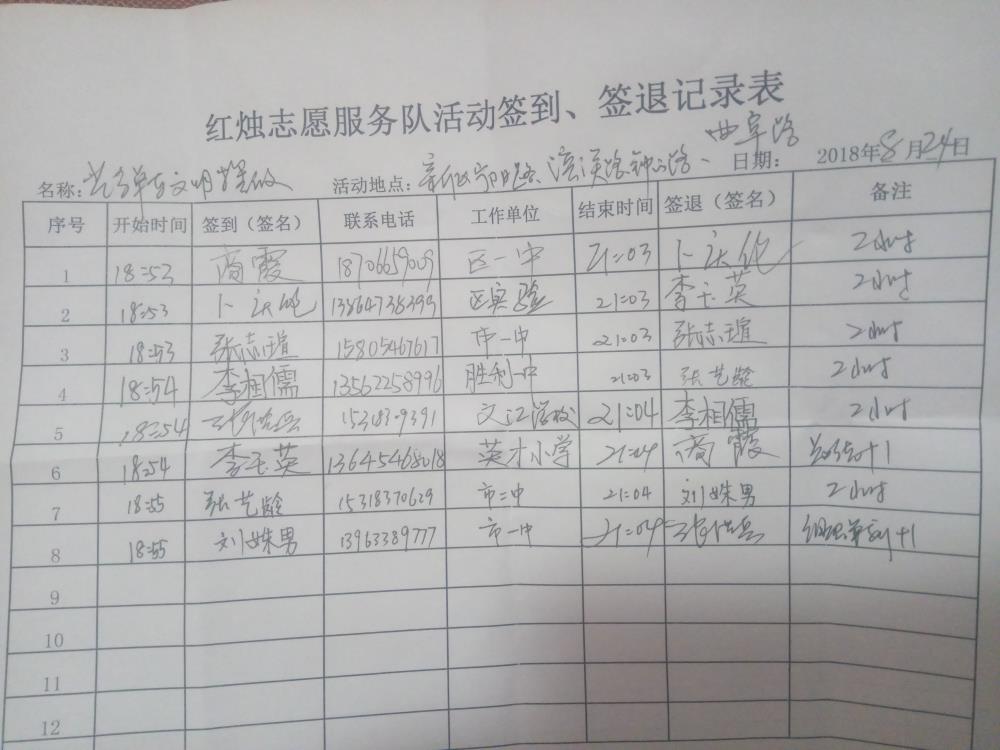 红烛志愿服务队活动签到、签退记录表
名称： 文明 活动地点： 路、 路 路、曲阜路 日期： 2018年8月24日
序号 开始时间 签到（签名） 联系电话 工作单位 结束时间 签退（签名） 备注
1 18:53 商霞 18706659009 区一中 21:03 卜庆伦 2小时
2 18:53 卜庆伦 13864738399 区实验 21:03 李玉英 2小时
3 18:53 张志瑄 15805467617 市一中 21:03 张志瑄 2小时
4 18:54 李相儒 13562258996 胜利一中 21:03 张艺龄 2小时
5 18:54 21:04 李相儒 2小时
6 18:54 李玉英 13645468018 英才小学 21:04 商霞 +1
7 18:55 张艺龄 15318370629 市二中 21:04 刘姝男 2小时
8 18:55 刘姝男 13963389777 市一中 21:04 +1
9
10
11
12